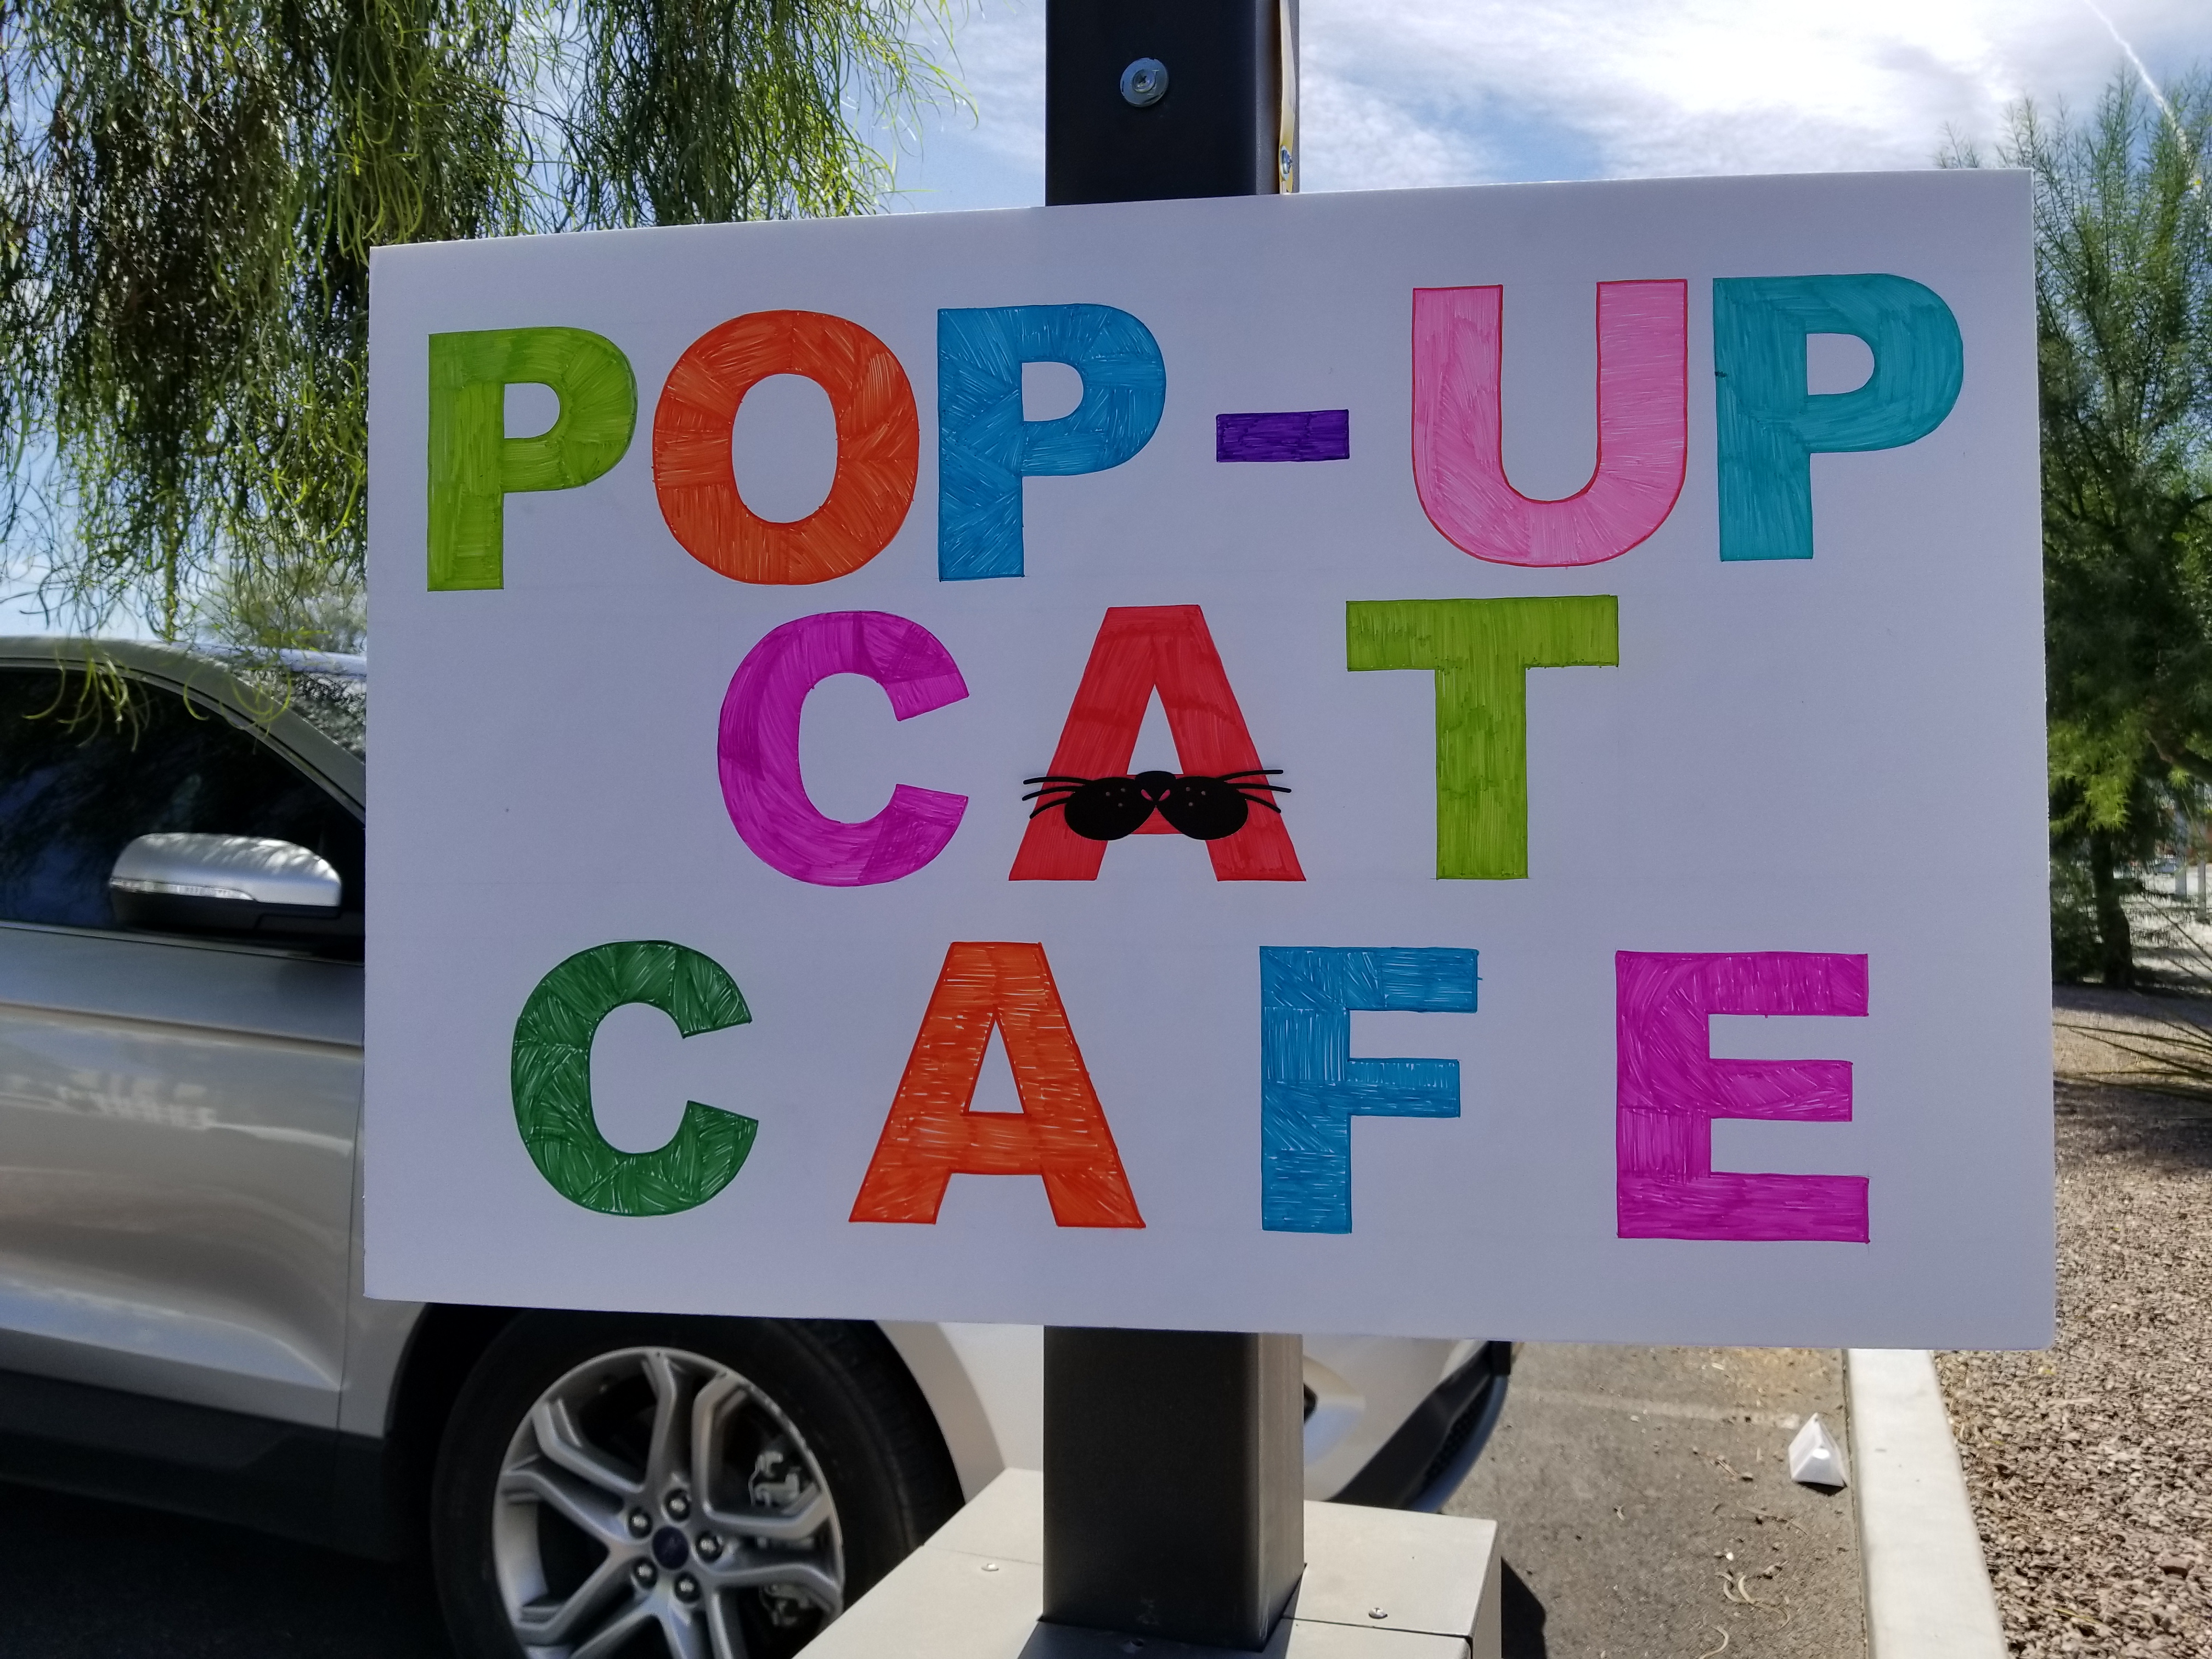 POP-UP
CAT
CAFE